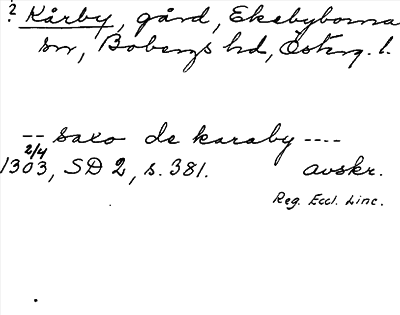 ? Kårby, gård, Ekebyborna
sn, Bobergs hd, Österg. l.
-- saxo de karaby ----
1303 2/4, SD 2, s. 381. avskr.
Reg. Eccl. Linc.